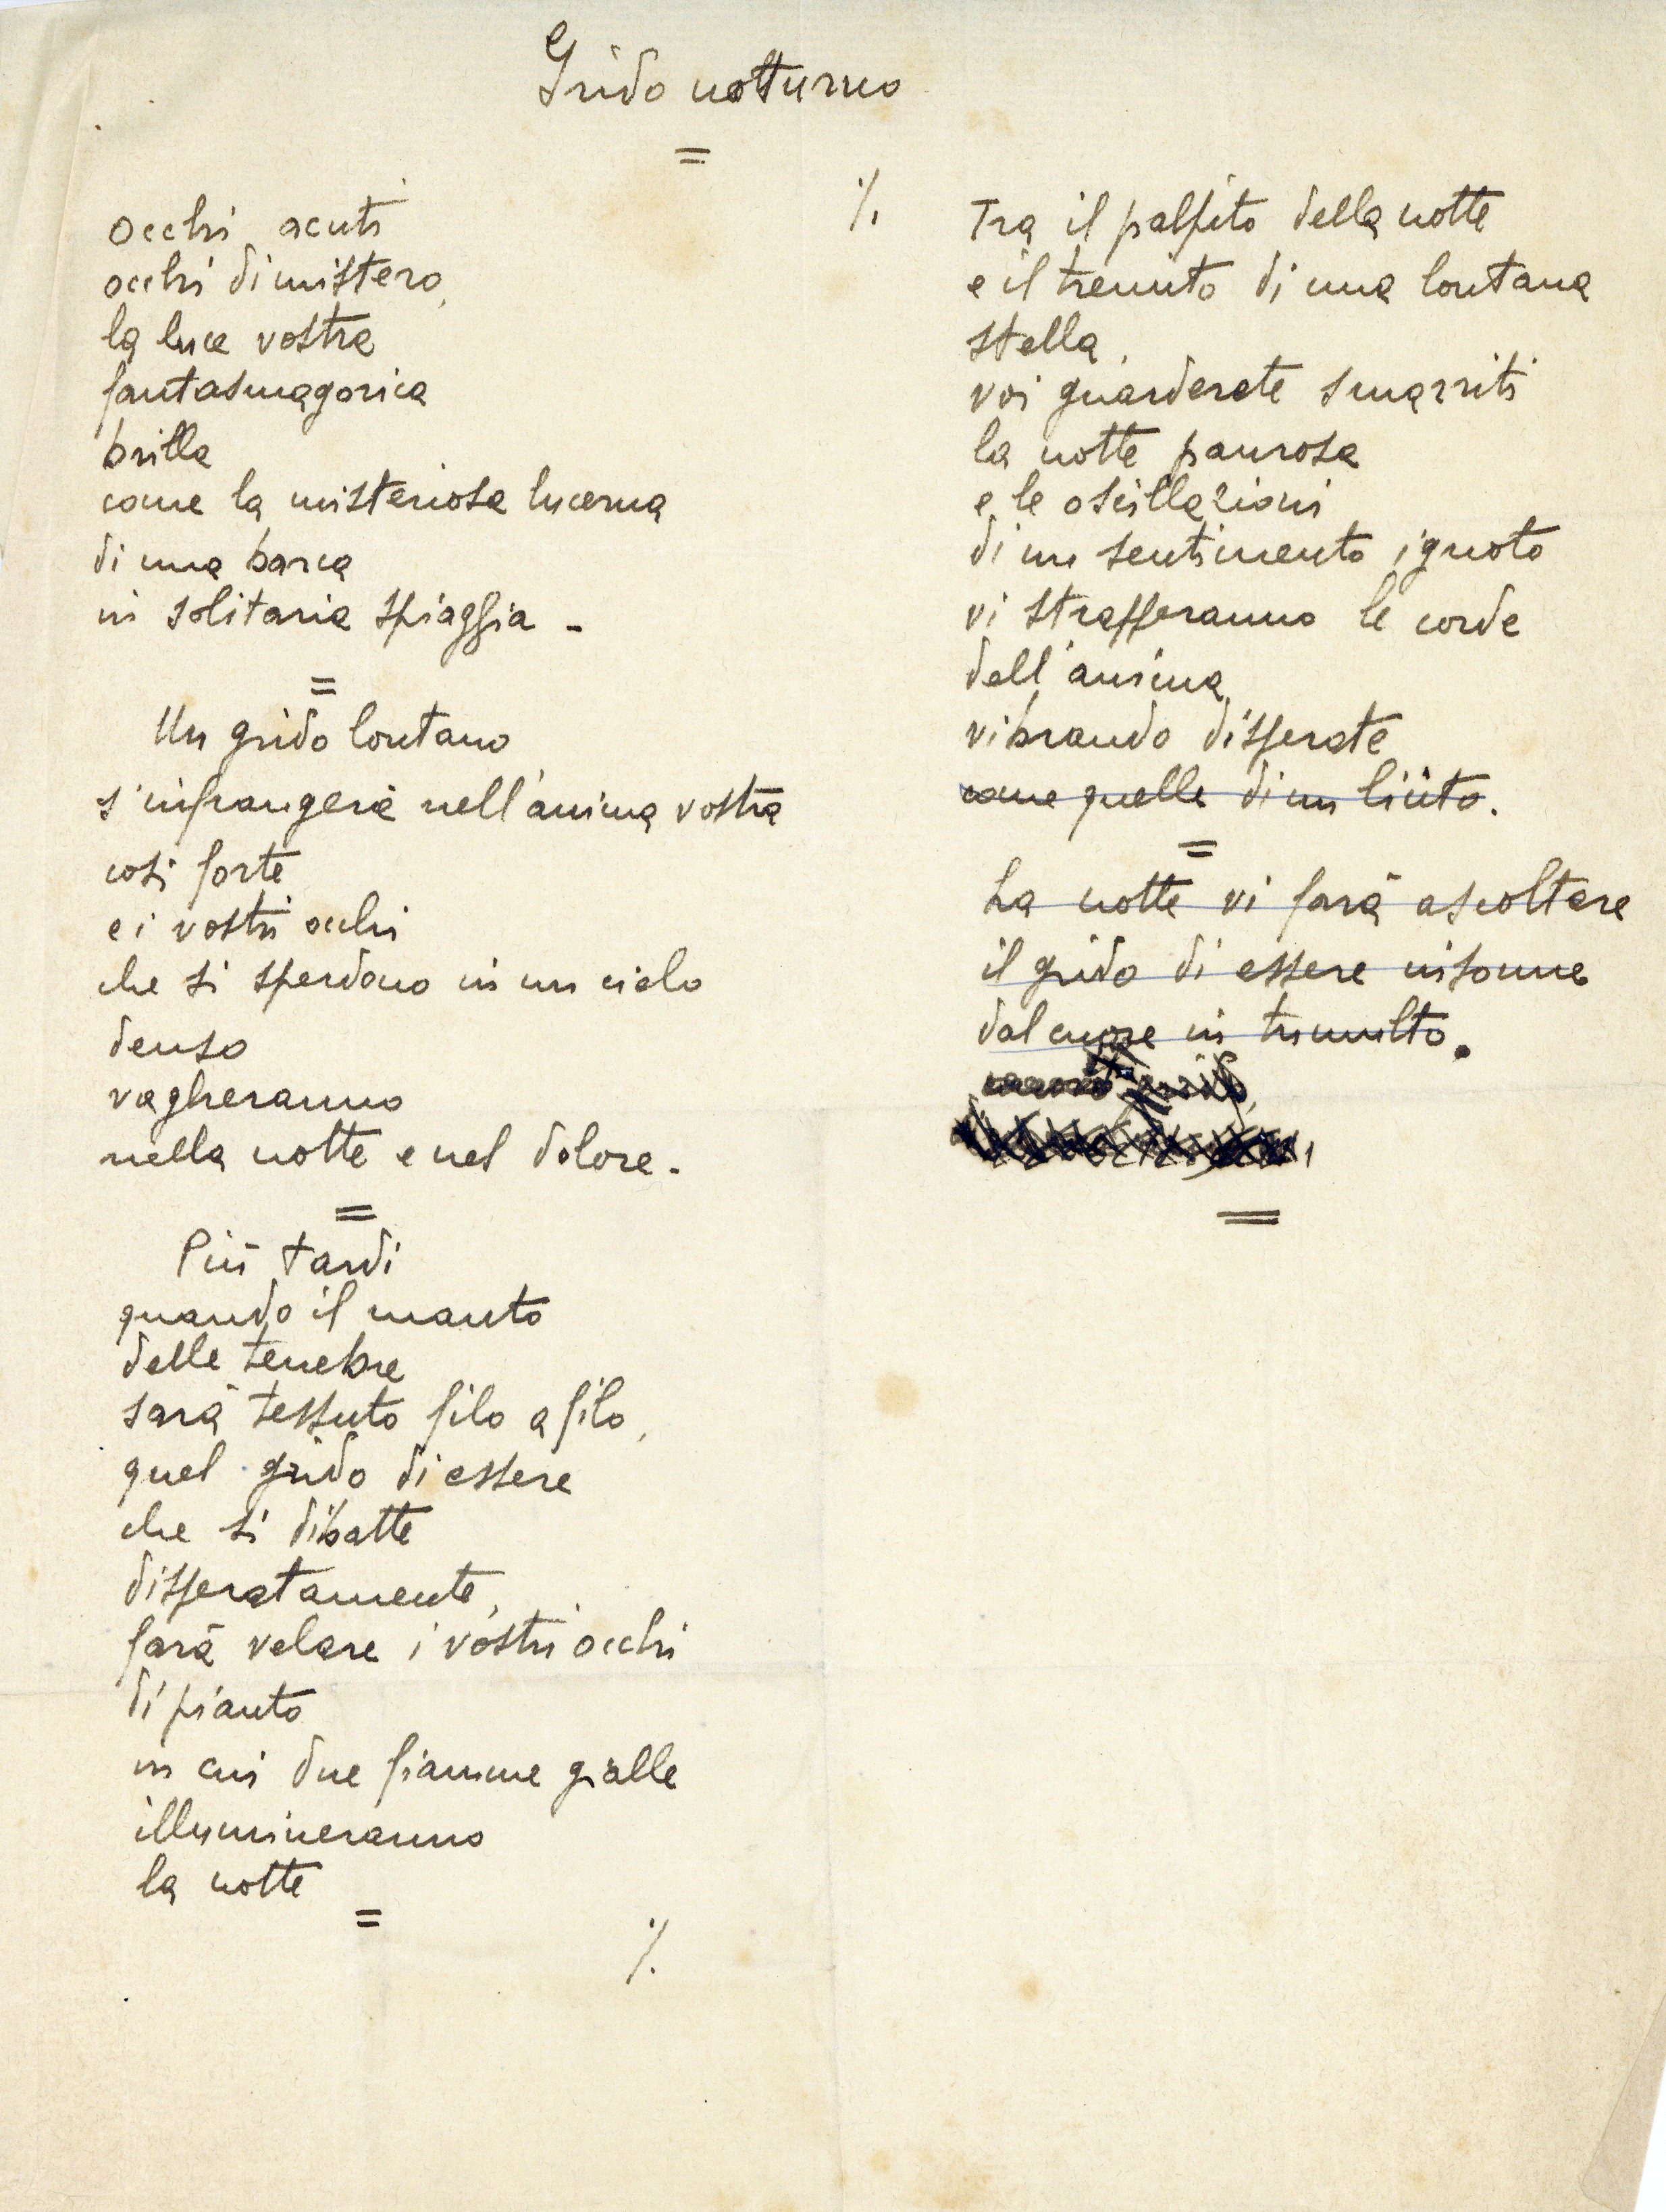 Grido notturno
=
Occhi acuti
occhi di mistero,
la luce vostra
fantasmagorica
brilla
come la misteriosa lucerna
di una barca
in solitaria spiaggia -
=
Un grido lontano
s'infrangerà nell'anima vostra
così forte
e i vostri occhi
che si sperdono in un cielo
denso
vagheranno
nella notte e nel dolore -
=
Più tardi
quando il manto
delle tenebre
sarà tessuto filo a filo,
quel grido di essere
che si dibatte
disperatamente,
farà velare i vostri occhi
di pianto
in cui due fiamme gialle
illumineranno
la notte
=
./.
./.
Tra il palpito della notte
e il tremito di una lontana
stella,
voi guarderete smarriti
la notte paurosa
e le oscillazioni
di un sentimento ignoto
vi strapperanno le corde
dell'anima
vibrando disperate
come quelle di un liuto.
=
La notte vi farà ascoltare
il grido di essere insonne
dal cuore in tumulto.
=